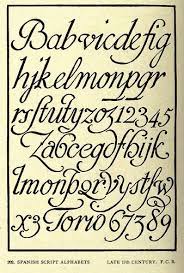 Babvicdefig
hjkelmonpqr
rsftutyzo312345
Zabcegdfhijk
lmonpqrvystfw
x3 Torio 67389
202. SPANISH SCRIPT ALPHABETS LATE 18TH CENTURY. F. C. B.